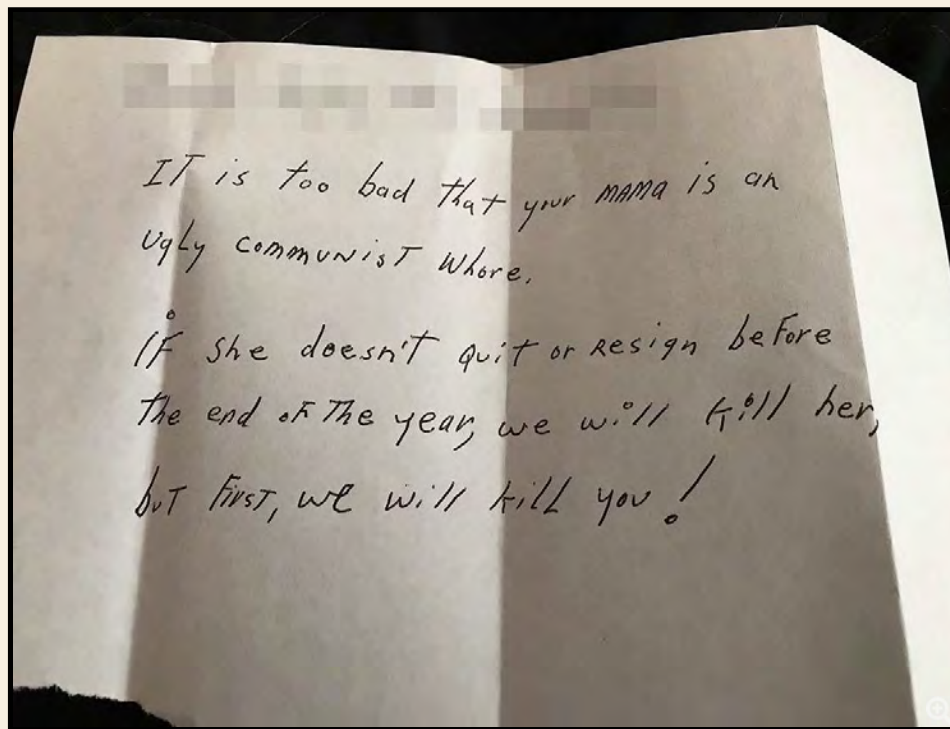 IT is too bad that your MAMA is an
UgLy communisT Whore.
IF she doesn't quit or Resign before
The end oF The year, we will kill her,
buT First, we will kill you!